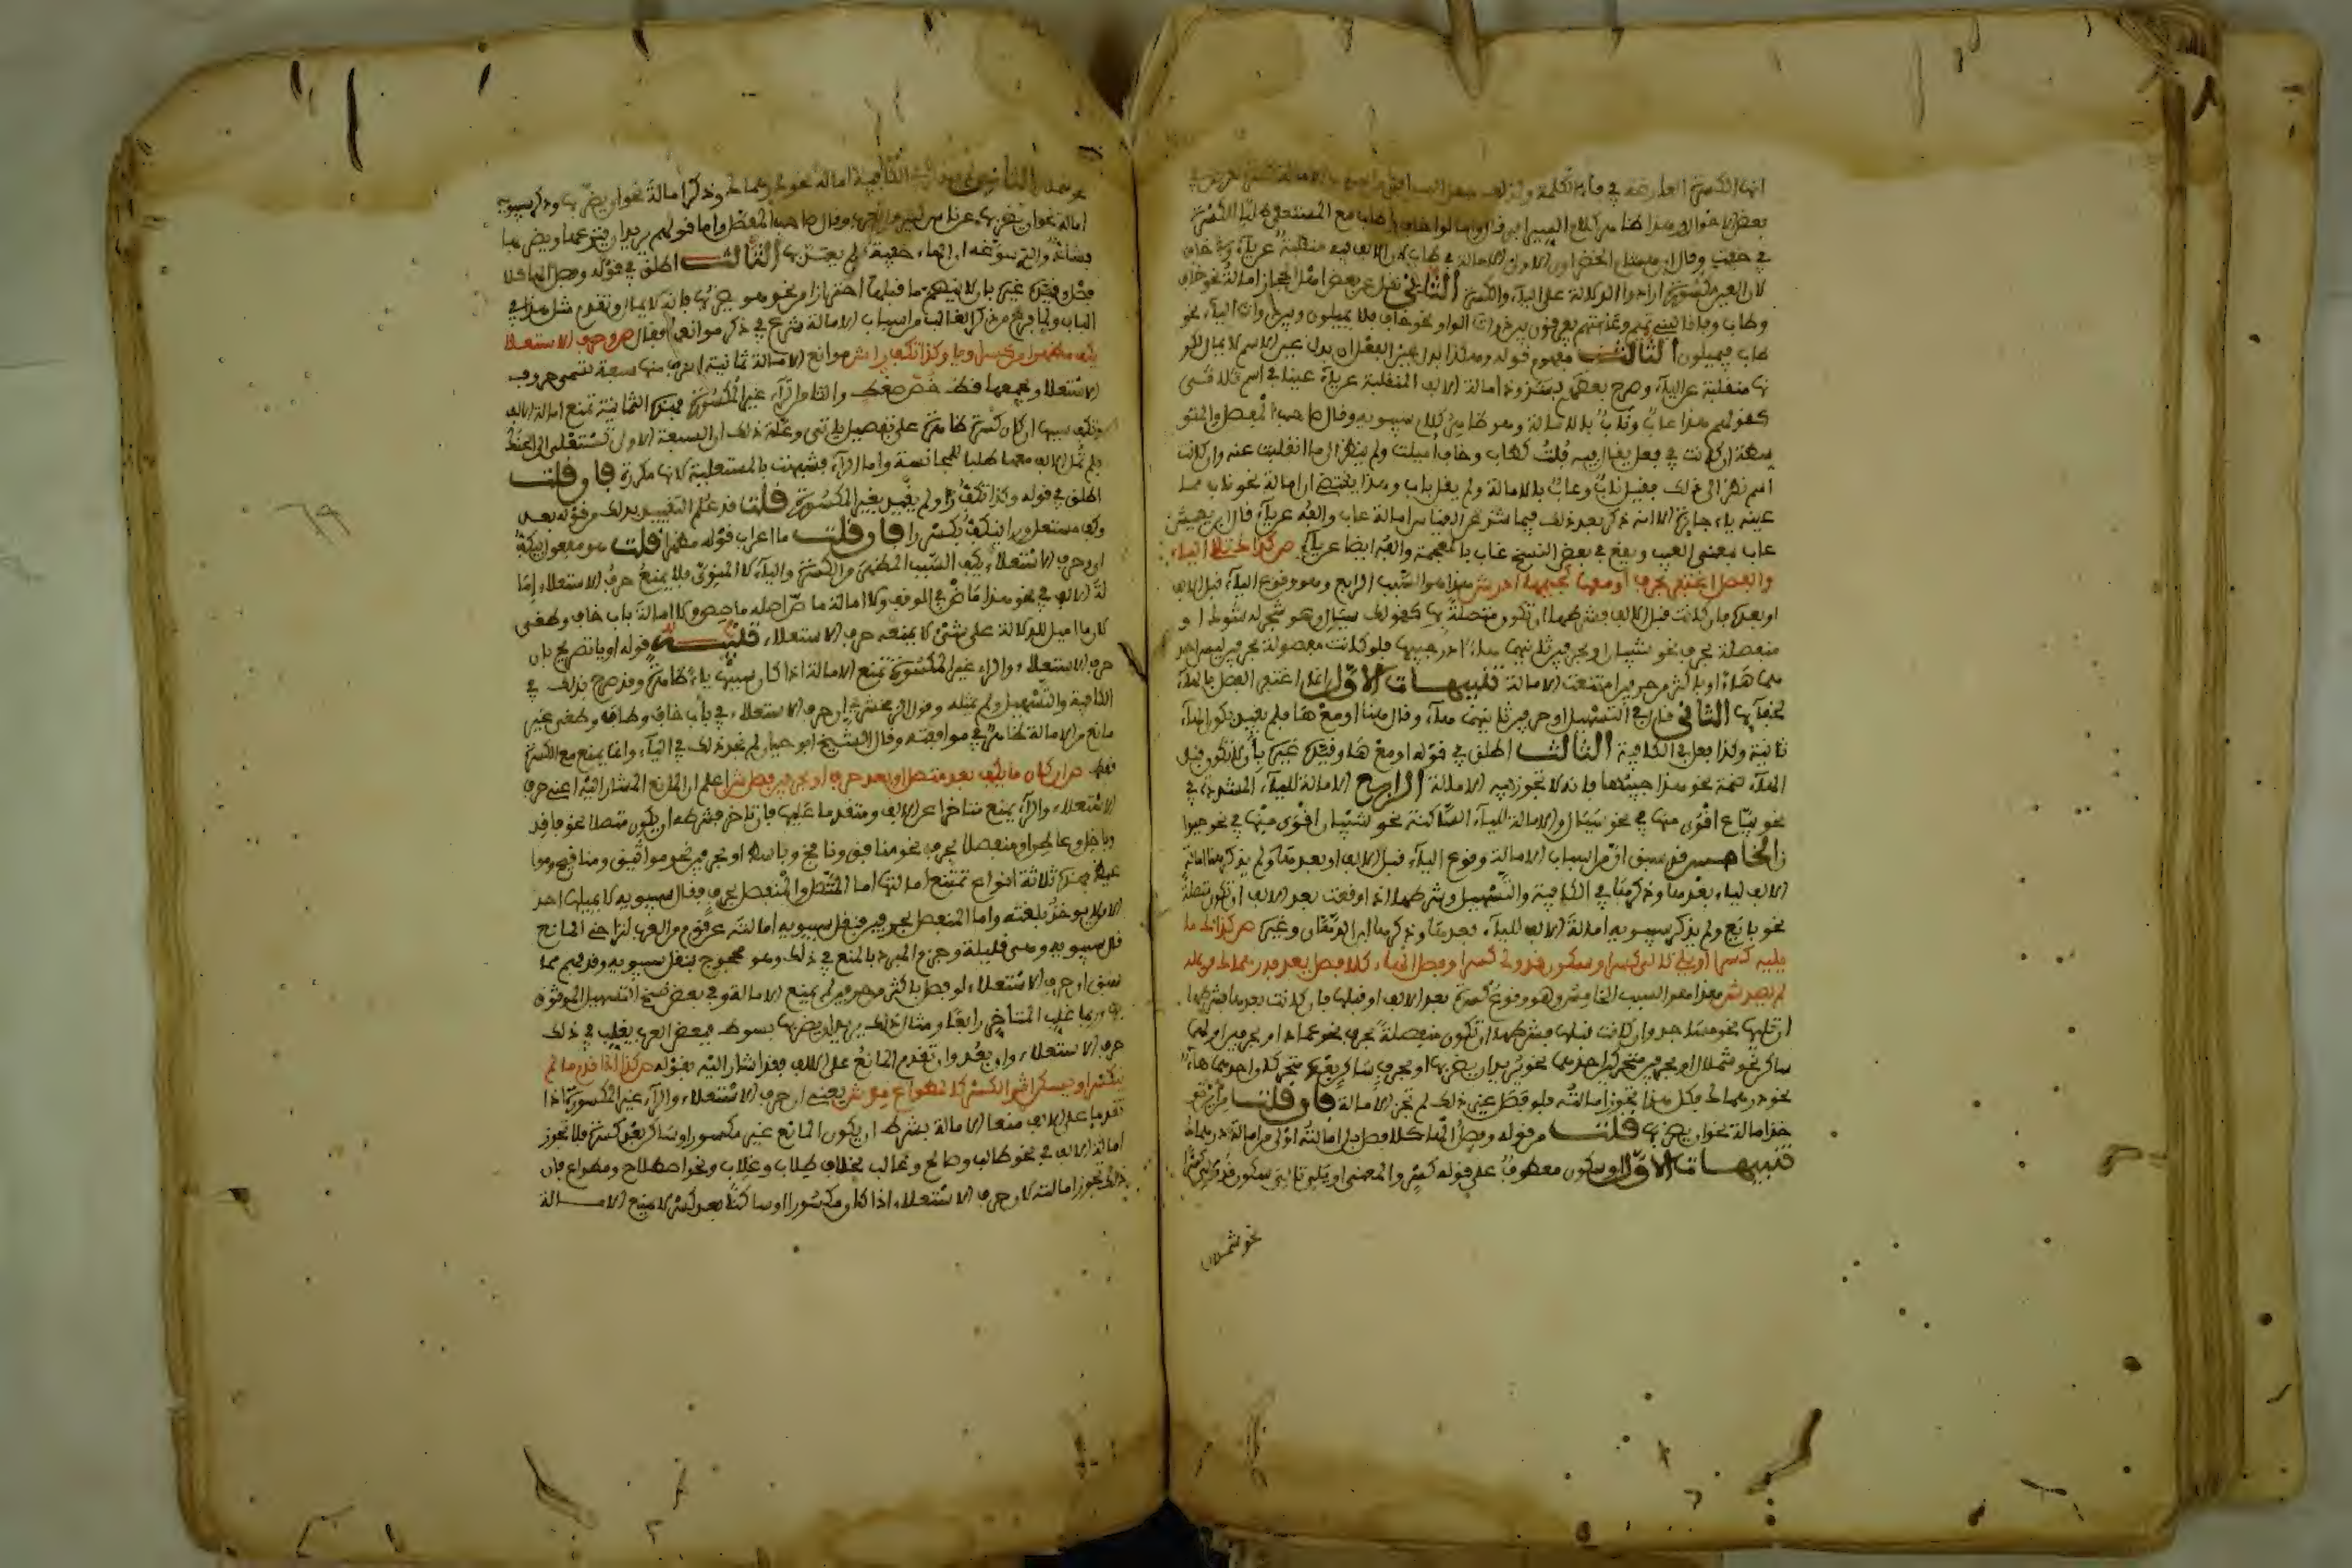 بعض الاحوال وهذا هنا من كلام السيرافي فال وامالوا خاف وطاب مع المستعلي طلبا للكسرة
في خفت وفال ابن هشام الخضراوي الاولى ان الامالة في طاب لان الالف فيه منقلبة عن ياء وفي خاف
لان العين مكسورة ارادوا الدلالة على الياء والكسرة الثاني نقل عن بعض اهل الحجاز امالة نحو خاف
وطاب وفافا لبني تميم وعامتهم يفرفون بين ذوات الواو نحو خاف فلا يميلون وبين ذوات الياء نحو
طاب فيميلون الثالث مفهوم فوله وهكذا بدل عين الفعل ان بدل عين الاسم لا يمال لكو
نها منقلبة عن الياء وصرح بعضهم بشذوذ امالة الالف المنقلبة عن ياء عينا في اسم ثلاثي
كفولهم هذا عاب وناب بالامالة وهو ظاهر كلام سيبويه وفال صاحب المفصل والمتو
سطة ان كانت في فعل يفال فيه فلت كطاب وخاف اميلت ولم ينظر الى ما انقلبت عنه وان كانت
اسم نظر الى ذلك ففيل ناب وعاب بالامالة ولم يفل باب وهذا يفتضي ان امالة نحو ناب مما
عينه ياء جائزة الا انه ذكر بعد ذلك فيما شذ عن الفياس امالة عاب والفه عن ياء فال ابن يعيش
عاب بمعنى العيب ويفع في بعض النسخ غاب بالمعجمة والفه ايضا عن ياء ص كذاك تالي الياء
والفصل اغتفر بحرف او مع ها كجيبها ادر ش هذا هو السبب الرابع وهو وفوع الياء فبل الالف
او بعدها فان كانت فبل الالف فشرطها ان تكون متصلة بها كفولك سيال وهو شجر له شوك او
منفصلة بحرف نحو شيبان او بحرفين ثانيهما هاء نحو ادر جيبها فلو كانت مفصولة بحرفين ليس احد
هما هاء او باكثر من حرفين امتنعت الامالة تنبيهات الاول انما اغتفر الفصل بالهاء
لخفائها الثاني فال في التسهيل او حرفين ثانيهما هاء وفال هنا او مع ها فلم يفيد بكون الهاء
ثانية وكذا فعل في الكافية الثالث اطلق في فوله او مع ها وفيده غيره بان لا تكون فبل
الهاء ضمة نحو هذا جيبها فانه لا تجوز فيه الامالة الرابع الامالة للياء المشددة في
نحو بياع افوى منها في نحو سيال والامالة للياء الساكنة نحو شيبان افوى منها في نحو حيوا
ن الخامس فد سبق ان من اسباب الامالة وفوع الياء فبل الالف او بعدها ولم يذكر هنا امالة
الالف لياء بعدها وذكرها في الكافية والتسهيل وشرطها اذا وفعت بعد الالف ان تكون متصلة
نحو بايع ولم يذكر سيبويه امالة الالف للياء بعدها وذكرها ابن الدهان وغيره ص كذاك ما
يليه كسر او يلي تالي كسر او سكون فد ولي كسرا وفصل الهاء كلا فصل يعد فدرهماك من يمله
لم يصد ش هذا هو السبب الخامس وهو وفوع كسرة بعد الالف او فبلها فان كانت بعدها فشرطها
ان تليها نحو مساجد وان كانت فبلها فشرطها ان تكون منفصلة بحرف نحو عماد او بحرفين اولهما
ساكن نحو شملال او بحرفين متحركين احدهما هاء نحو يريد ان يضربها او بحرف ساكن بعده متحركان احدهما هاء
نحو درهماك فكل هذا تجوز امالته فلو فصل بغير ذلك لم تجز الامالة فان فلت من اين تو
خذ امالة نحو ان يضربها فلت من فوله وفصل الهاء كلا فصل بل امالته اولى من امالة درهماك
تنبيهات الاول وسكون معطوف على فوله كسر والمعنى او يلي تالي سكون فد ولي كسرا
نحو شملال
امالة نحو ان يضربها وفال صاحب المفصل واما فولهم يريد ان ينزعها ويضربها
فشاذ والذي سوغه ان الهاء خفية فلم يعتد بها الثالث اطلق في فوله وفصل الهاء كلا
فصل وفيده غيره بان لا ينضم ما فبلها احترازا من نحو هو يضربها فانه لا يمال وتقدم مثل هذا في
الياء ولما فرغ من ذكر الغالب من اسباب الامالة شرع في ذكر موانعها فقال ص وحرف الاستعلا
يكف مظهرا من كسر او يا وكذا تكف را ش موانع الامالة ثمانية احرف منها سبعة تسمى حروف
الاستعلاء ويجمعها فظ خص ضغط والثامن الراء غير المكسورة فهذه الثمانية تمنع امالة الالف
وتكف سببها ان كان كسرة ظاهرة على تفصيل ياتي وعلة ذلك ان السبعة الاولى تستعلي الى الحنك
فلم تمل الالف معها طلبا للمجانسة واما الراء فشبهت بالمستعلية لانها مكررة فان فلت
اطلق في فوله وكذا تكف را ولم يفيد بغير المكسورة فلت فد علم التفييد بذلك من فوله بعد
وكف مستعل ورا ينكف بكسر را فان فلت ما اعراب فوله مظهرا فلت هو مفعول يكف
اي وحرف الاستعلاء يكف السبب المظهر من الكسرة والياء لا المنوي فلا يمنع حرف الاستعلاء اما
لة الالف في نحو هذا ماض في الوفف ولا امالة ماص اصله ماصص ولا امالة باب خاف وطغى
لان ما اميل للدلالة على شيء لا يمنعه حرف الاستعلاء تنبيه فوله او يا تصريح بان
حرف الاستعلاء والراء غير المكسورة تمنع الامالة اذا كان سببها ياء ظاهرة وفد صرح بذلك في
الكافية والتسهيل ولم يمثله وفول الزمخشري ان حرف الاستعلاء في باب خاف وطاف وطغى غير
مانع من الامالة ظاهر في موافقته وفال الشيخ ابو حيان لم نجد ذلك في الياء وانما يمنع مع الكسرة
فقط ص ان كان ما يكف بعد متصل او بعد حرف او بحرفين فصل ش اعلم ان المانع المشار اليه اعني حرف
الاستعلاء والراء يمنع متاخرا عن الالف ومتقدما عليها فان تاخر فشرطه ان يكون متصلا نحو فافد
وباخل وعاطس او منفصلا بحرف نحو منافق ونافخ وباسط او بحرفين نحو مواثيق ومنافيخ وموا
عيظ فهذه ثلاثة انواع تمتنع امالتها اما المتصل والمنفصل بحرف فقال سيبويه لا يميلها احد
الا من لا يوخذ بلغته واما المنفصل بحرفين فنقل سيبويه امالته عن فوم من العرب لتراخي المانع
فال سيبويه وهي فليلة وجزم المبرد بالمنع في ذلك وهو محجوج بنقل سيبويه وفد فهم مما
سبق ان حرف الاستعلاء لو فصل باكثر من حرفين لم يمنع الامالة وفي بعض نسخ التسهيل الموثوق
بها وربما غلب المتاخر رابعا ومثال ذلك يريد ان يضربها بسوط فبعض العرب يغلب في ذلك
حرف الاستعلاء وان بعد وان تقدم المانع على الالف فقد اشار اليه بفوله ص كذا اذا فدم ما لم
ينكسر او يسكن اثر الكسر كالمطواع مر ش يعني ان حرف الاستعلاء والراء غير المكسورة اذا
تقدما على الالف منعا الامالة بشرط ان يكون المانع غير مكسور او ساكن بعد كسرة فلا تجوز
امالة الالف في نحو طالب وصالح وغالب بخلاف طلاب وغلاب ونحو اصلاح ومطواع فان
ذلك تجوز امالته لان حرف الاستعلاء اذا كان مكسورا او ساكنا بعد كسر لا يمنع الامالة